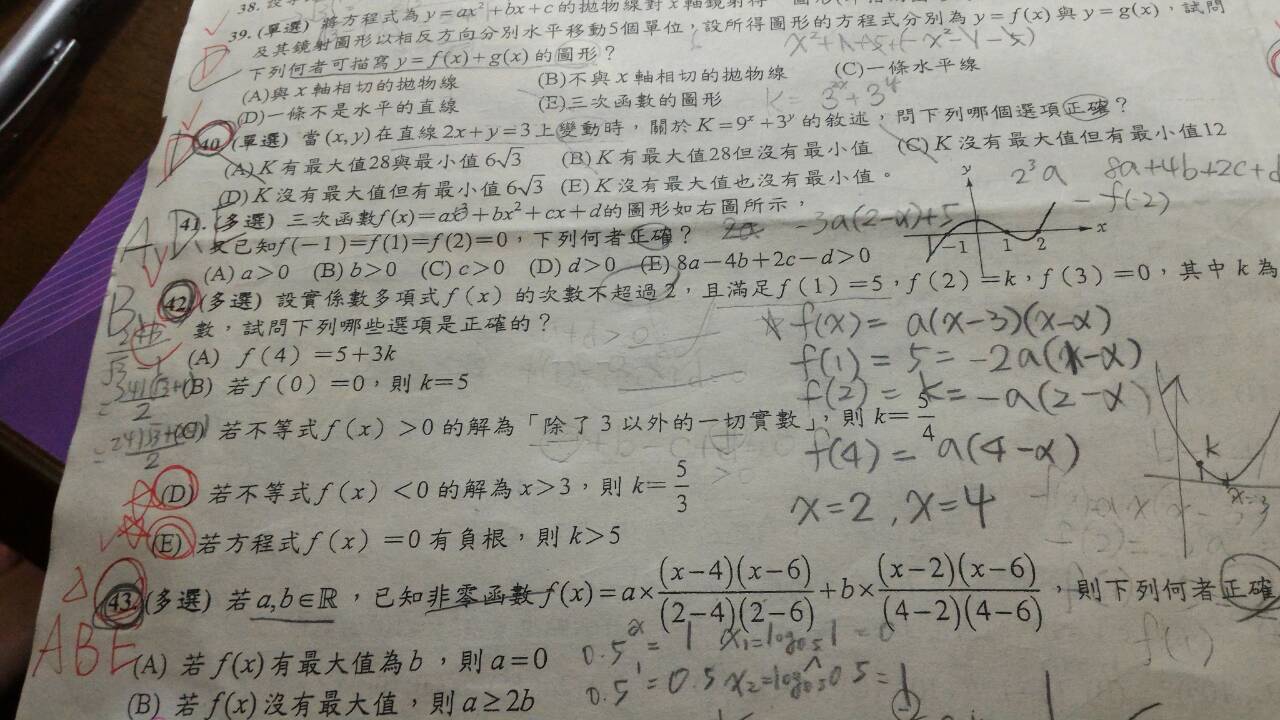 38.
39. (單選) 將方程式為 y=ax²+bx+c 的拋物線對 x 軸鏡射得
及其鏡射圖形以相反方向分別水平移動5個單位，設所得圖形的方程式分別為 y=f(x) 與 y=g(x)，試問
下列何者可描寫 y=f(x)+g(x) 的圖形？
D
(A)與 x 軸相切的拋物線 (B)不與 x 軸相切的拋物線 (C)一條水平線
(D)一條不是水平的直線 (E)三次函數的圖形
D 40. (單選) 當 (x,y) 在直線 2x+y=3 上變動時，關於 K=9ˣ+3ʸ 的敘述，問下列哪個選項正確？
(A) K 有最大值28與最小值 6√3 (B) K 有最大值28但沒有最小值 (C) K 沒有最大值但有最小值12
(D) K 沒有最大值但有最小值 6√3 (E) K 沒有最大值也沒有最小值。
2³a 8a+4b+2c+d
-f(-2)
AD 41. (多選) 三次函數 f(x)=ax³+bx²+cx+d 的圖形如右圖所示，
y
-1 1 2 x
又已知 f(-1)=f(1)=f(2)=0，下列何者正確？
-3a(2-α)+5
(A) a>0 (B) b>0 (C) c>0 (D) d>0 (E) 8a-4b+2c-d>0
42. (多選) 設實係數多項式 f(x) 的次數不超過 2，且滿足 f(1)=5，f(2)=k，f(3)=0，其中 k 為
數，試問下列哪些選項是正確的？
f(x)= a(x-3)(x-α)
(A) f(4)=5+3k
f(1)=5=-2a(1-α)
(B) 若 f(0)=0，則 k=5
f(2)=k=-a(2-α)
(C) 若不等式 f(x)>0 的解為「除了 3 以外的一切實數」，則 k=5/4
f(4)=a(4-α)
k
x=3
(D) 若不等式 f(x)<0 的解為 x>3，則 k=5/3
x=2，x=4
(E) 若方程式 f(x)=0 有負根，則 k>5
43. (多選) 若 a,b∈ℝ，已知非零函數 f(x)=a×(x-4)(x-6)/(2-4)(2-6)+b×(x-2)(x-6)/(4-2)(4-6)，則下列何者正確
ABE
f(1)
(A) 若 f(x) 有最大值為 b，則 a=0
(B) 若 f(x) 沒有最大值，則 a≥2b